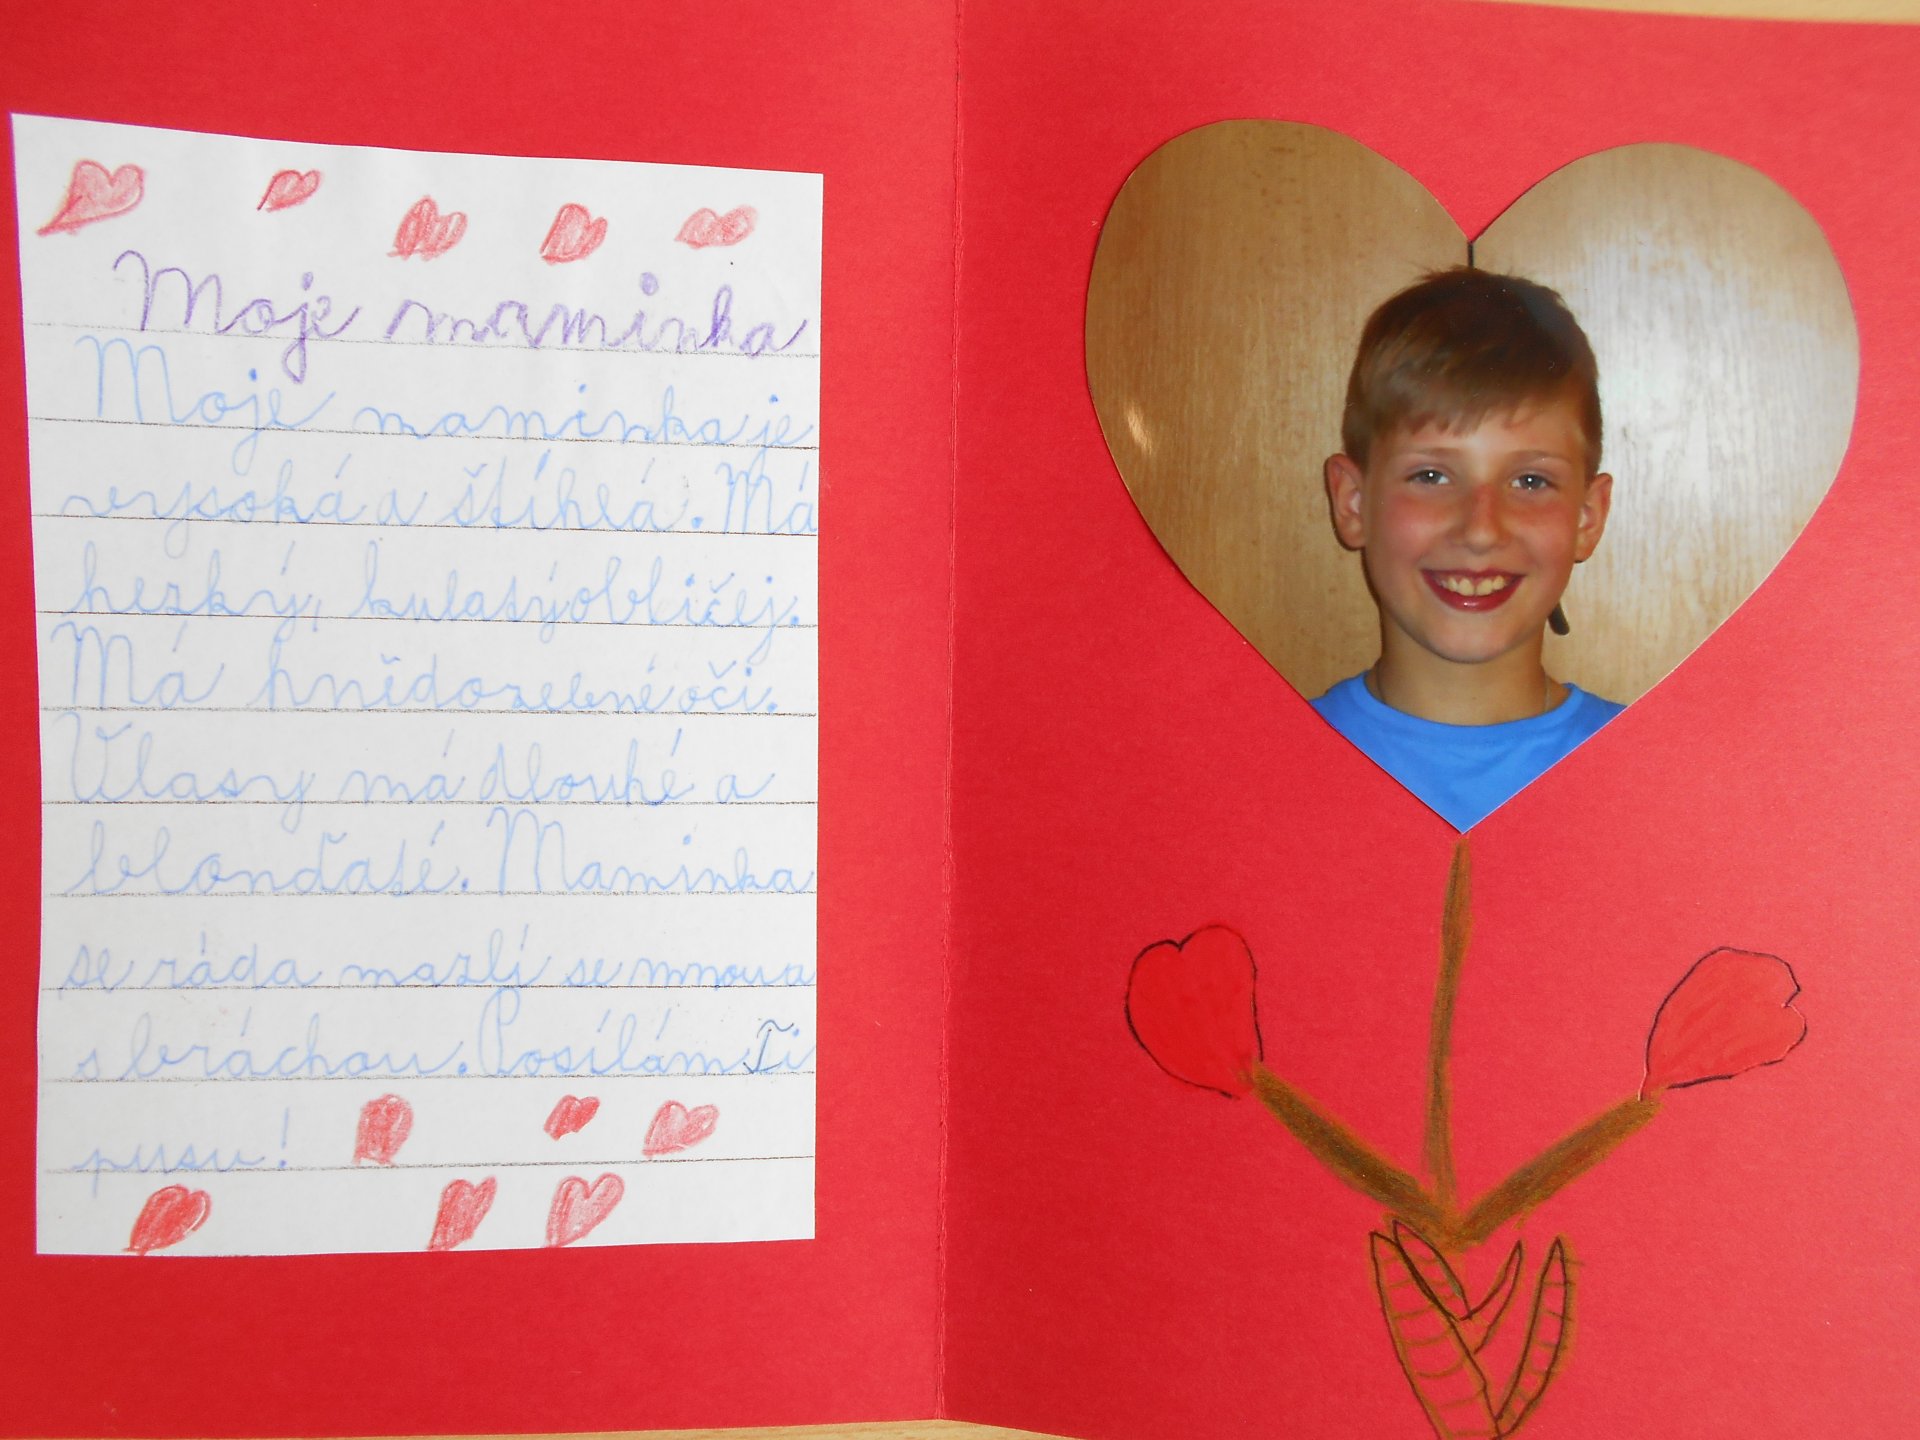 Moje maminka
Moje maminka je
vysoká a štíhlá. Má
hezký, kulatý obličej.
Má hnědozelené oči.
Vlasy má dlouhé a
blonďaté. Maminka
se ráda mazlí se mnou a
s bráchou. Posílám Ti
pusu!